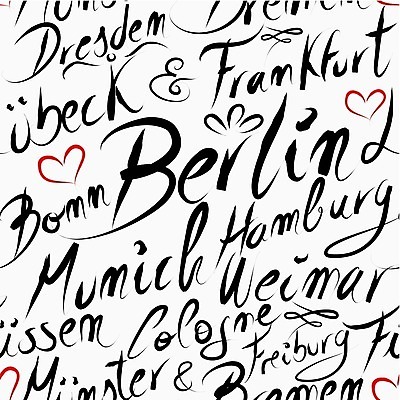 Dresden
übeck & Frankfurt
Berlin
Bonn
Hamburg
Munich Weimar
üssen Cologne
Freiburg Fü
Münster & Bremen